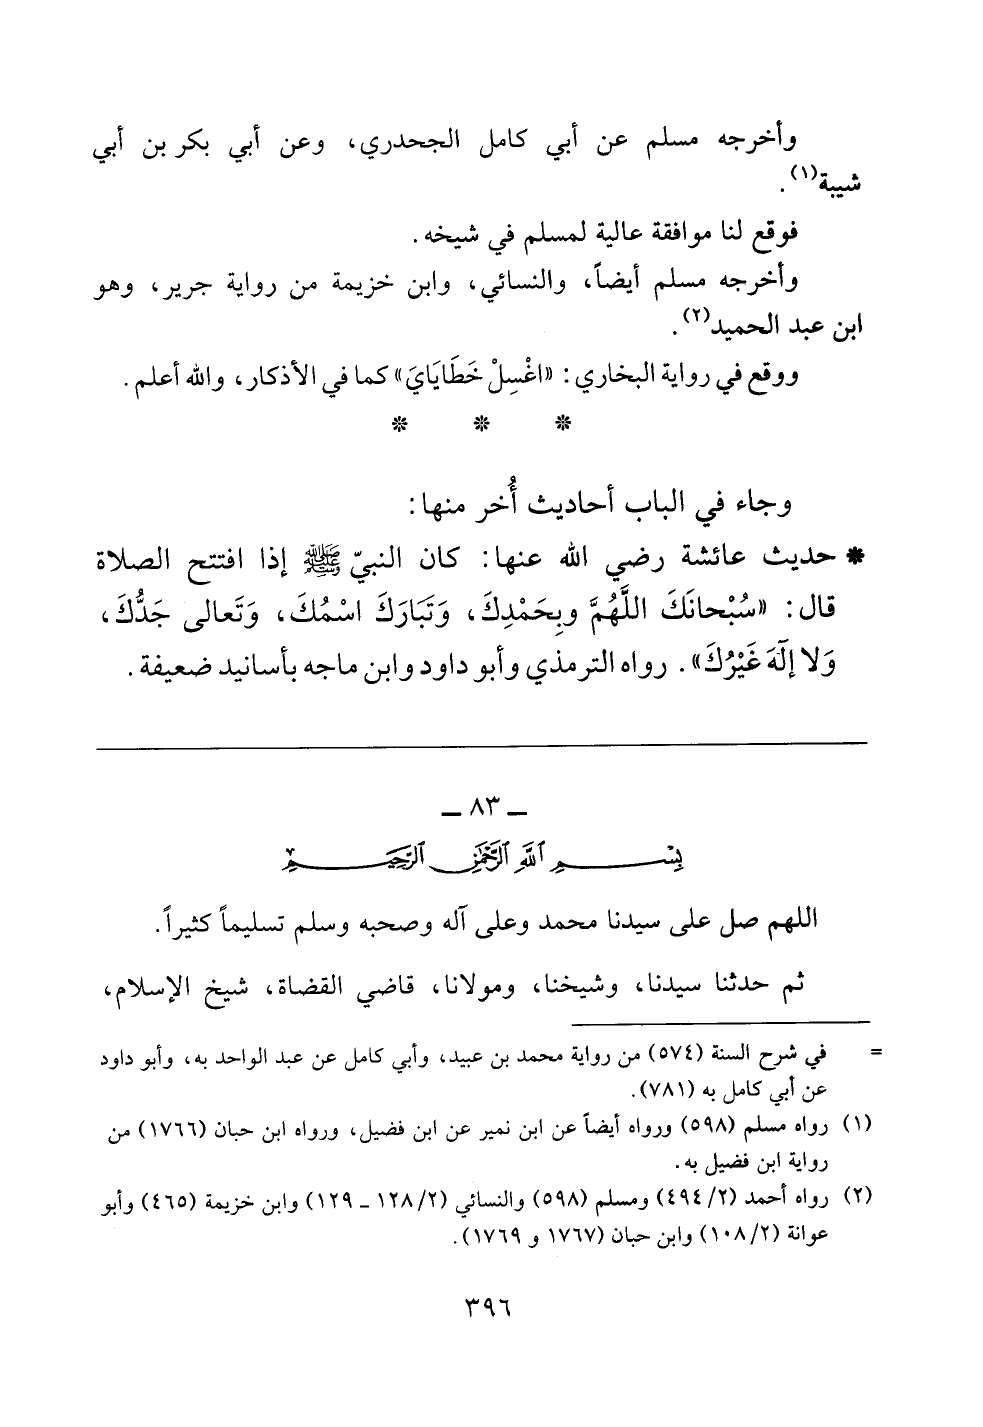 وأخرجه مسلم عن أبي كامل الجحدري، وعن أبي بكر بن أبي
شيبة(١).
فوقع لنا موافقة عالية لمسلم في شيخه.
وأخرجه مسلم أيضاً، والنسائي، وابن خزيمة من رواية جرير، وهو
ابن عبد الحميد(٢).
ووقع في رواية البخاري: «اغْسِلْ خَطَايَايَ» كما في الأذكار، والله أعلم.
* * *
وجاء في الباب أحاديث أُخر منها:
* حديث عائشة رضي الله عنها: كان النبيّ ﷺ إذا افتتح الصلاة
قال: «سُبْحانَكَ اللَّهُمَّ وبِحَمْدِكَ، وَتَبَارَكَ اسْمُكَ، وَتَعالى جَدُّكَ،
وَلا إلٰهَ غَيْرُكَ». رواه الترمذي وأبو داود وابن ماجه بأسانيد ضعيفة.
ـ ٨٣ ـ
بِسْمِ اللَّهِ الرَّحْمَٰنِ الرَّحِيمِ
اللهم صل على سيدنا محمد وعلى آله وصحبه وسلم تسليماً كثيراً.
ثم حدثنا سيدنا، وشيخنا، ومولانا، قاضي القضاة، شيخ الإسلام،
= في شرح السنة (٥٧٤) من رواية محمد بن عبيد، وأبي كامل عن عبد الواحد به، وأبو داود
عن أبي كامل به (٧٨١).
(١) رواه مسلم (٥٩٨) ورواه أيضاً عن ابن نمير عن ابن فضيل، ورواه ابن حبان (١٧٦٦) من
رواية ابن فضيل به.
(٢) رواه أحمد (٤٩٤/٢) ومسلم (٥٩٨) والنسائي (١٢٨/٢ ـ ١٢٩) وابن خزيمة (٤٦٥) وأبو
عوانة (١٠٨/٢) وابن حبان (١٧٦٧ و ١٧٦٩).
٣٩٦